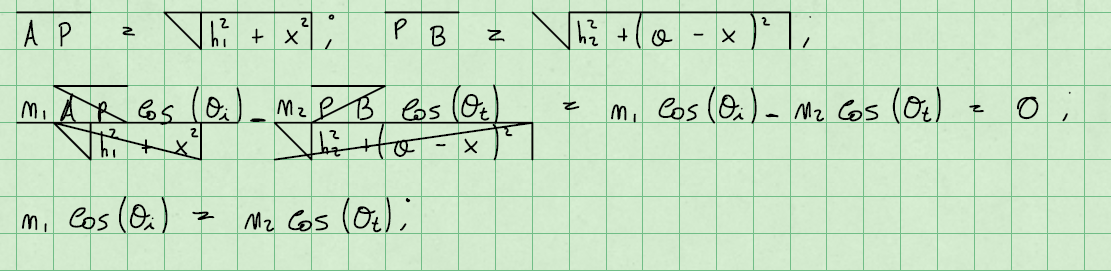 $\overline{AP} = \sqrt{h_1^2 + x^2}$ ; $\overline{PB} = \sqrt{h_2^2 + (a - x)^2}$ ;
$\frac{n_1 \cancel{\overline{AP}} \cos(\theta_i)}{\cancel{\sqrt{h_1^2 + x^2}}} - \frac{n_2 \cancel{\overline{PB}} \cos(\theta_t)}{\cancel{\sqrt{h_2^2 + (a - x)^2}}} = n_1 \cos(\theta_i) - n_2 \cos(\theta_t) = 0$ ;
$n_1 \cos(\theta_i) = n_2 \cos(\theta_t)$ ;